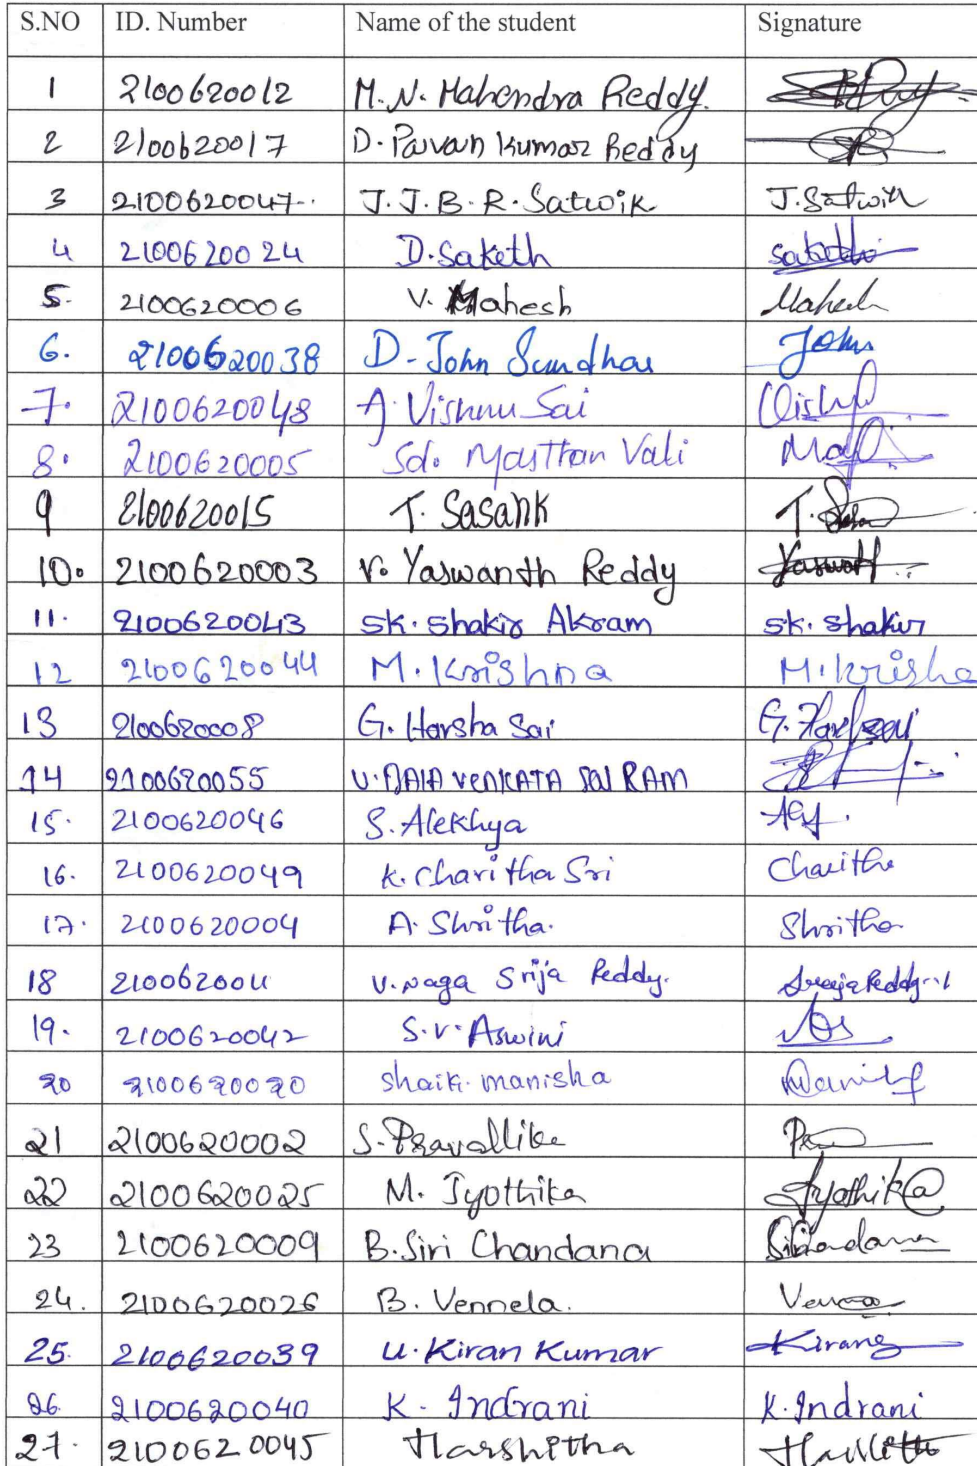 S.NO ID. Number Name of the student Signature
1 2100620012 M.N. Mahendra Reddy.
2 2100620017 D. Pavan Kumar Reddy
3 2100620047.. J.J.B.R. Satwik J. Satwik
4 2100620024 D. Saketh saketh
5. 2100620006 V. Mahesh Mahesh
6. 2100620038 D. John Sundhar John
7. 2100620048 A. Vishnu Sai
8. 2100620005 Sd. Masthan Vali
9 2100620015 T. SASANK T.
10. 2100620003 V. Yaswanth Reddy Yaswanth
11. 2100620043 SK. Shakir Akram SK. Shakir
12 2100620044 M. Krishna M. Krishna
13 2100620008 G. Harsha Sai G.
14 2100620055 VENKATA SAI RAM
15. 2100620046 S. Alekhya
16. 2100620049 K. Charitha Sri Charitha
17. 2100620004 A. Shritha. Shritha
18 210062001 V. Naga Srija Reddy. Sreeja Reddy
19. 2100620042 S.V. Aswini
20 2100620020 Shaik. manisha
21 2100620002 S. Pravallika
22 2100620025 M. Jyothika Jyothika
23 2100620009 B. Siri Chandana
24. 2100620026 B. Vennela.
25. 2100620039 U. Kiran Kumar Kiran
26. 2100620040 K. Indrani K. Indrani
27. 2100620045 Harshitha